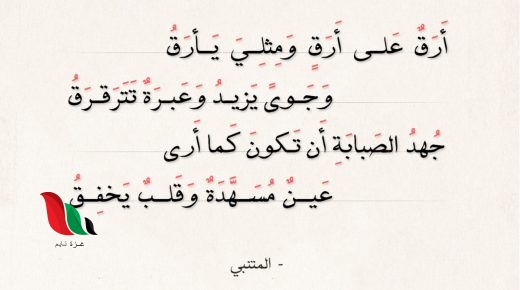 أَرَقٌ عَلى أَرَقٍ وَمِثلِيَ يَأرَقُ
وَجَوىً يَزيدُ وَعَبرَةٌ تَتَرَقرَقُ
جُهدُ الصَبابَةِ أَن تَكونَ كَما أَرى
عَينٌ مُسَهَّدَةٌ وَقَلبٌ يَخفِقُ
غزة تايم
- المتنبي